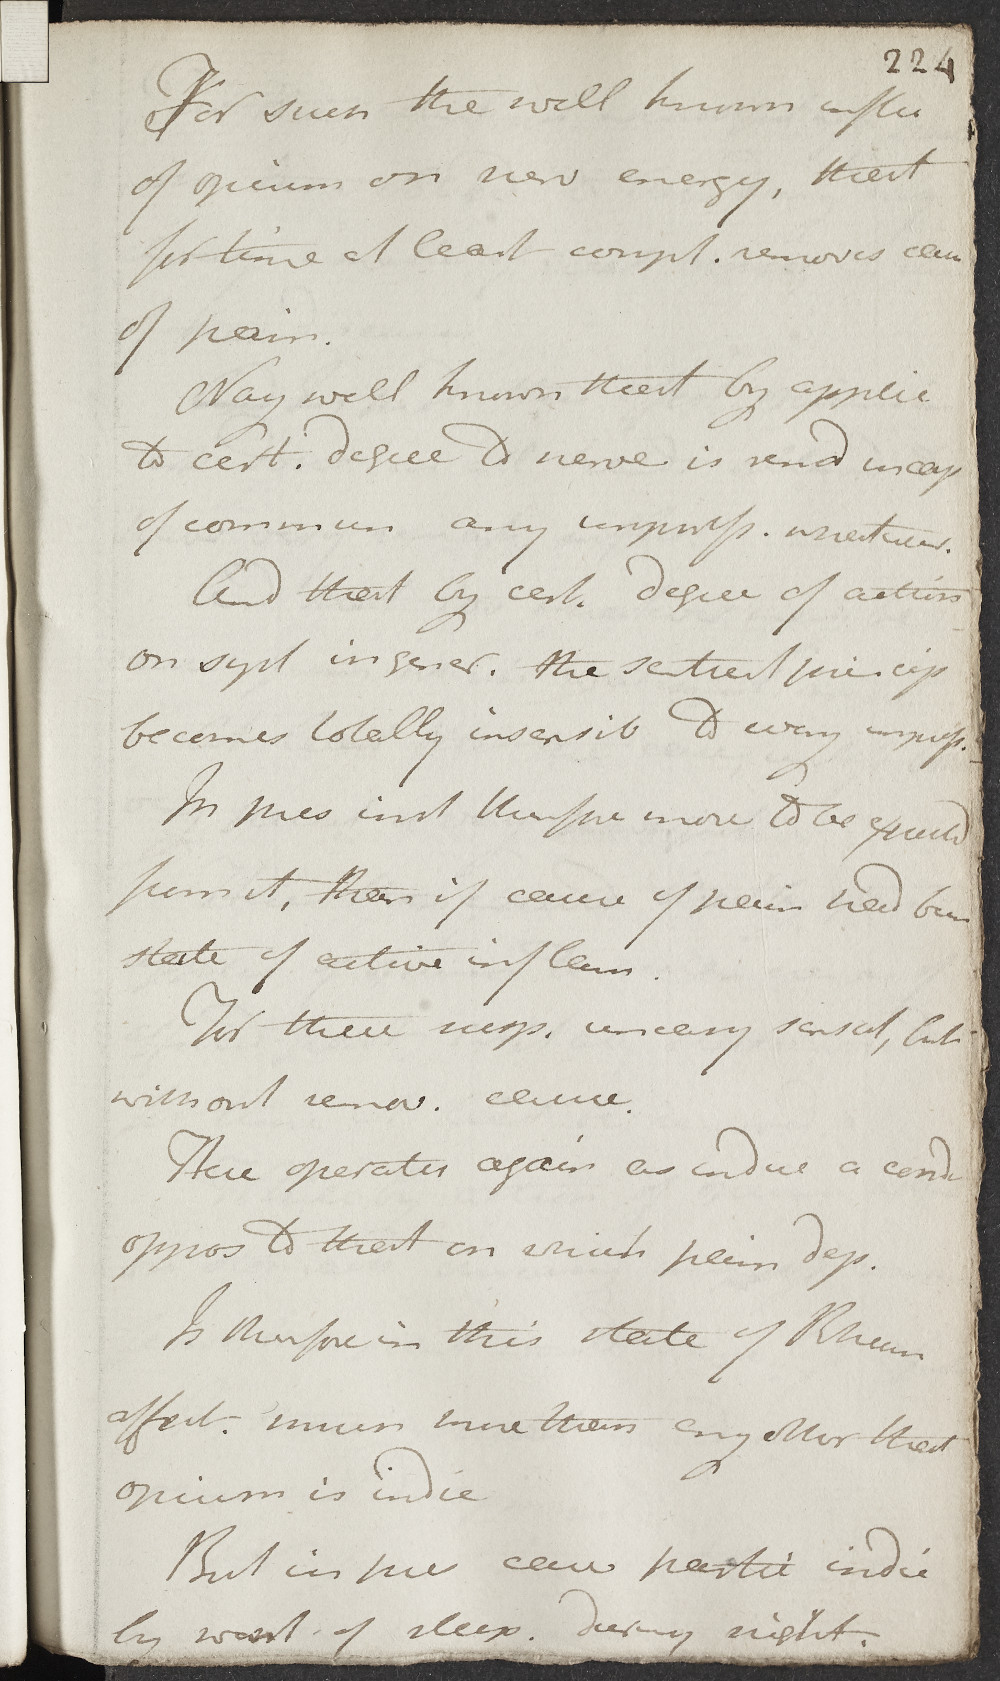 224
For such the well known influ
of opium on nerv energy, that
for time at least compl. removes cau
of pain.
Nay well known that by applic
to cert. degree to nerve is rend incap
of commun any impress. whatever.
And that by cert. degree of action
on syst in gener. the sentient princip
becomes totally insensib to every impress.
In pres inst therefore more to be expected
from it, than if cause of pain had been
state of active inflam.
For there resp. uneasy sensat, but
without remov. cause.
Here operates again as induc a cond
oppos to that on which pain dep.
Is therefore in this state of Rheum
affect. much more than any other that
opium is indic
But in pres case partic indic
by want of sleep. during night.